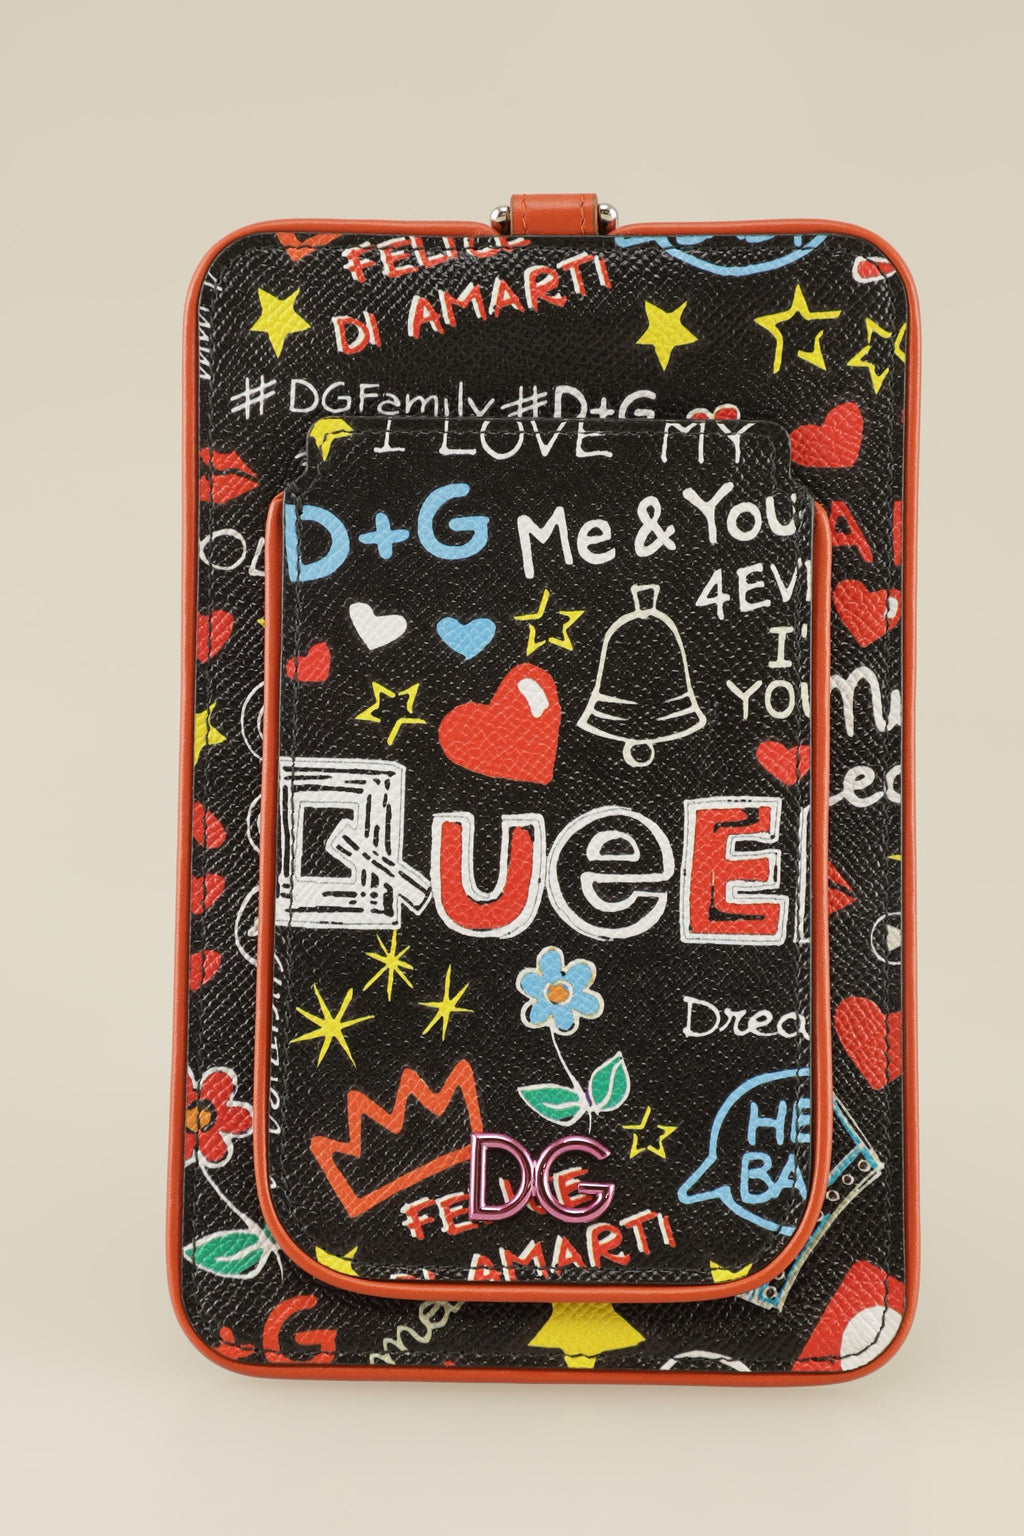 FELICE
DI AMARTI
#DGFamily #D+G
I LOVE MY
D+G Me & You
4EV
I'
YOU
QUEE
Drea
HE
BA
DG
FELICE
DI AMARTI
+G